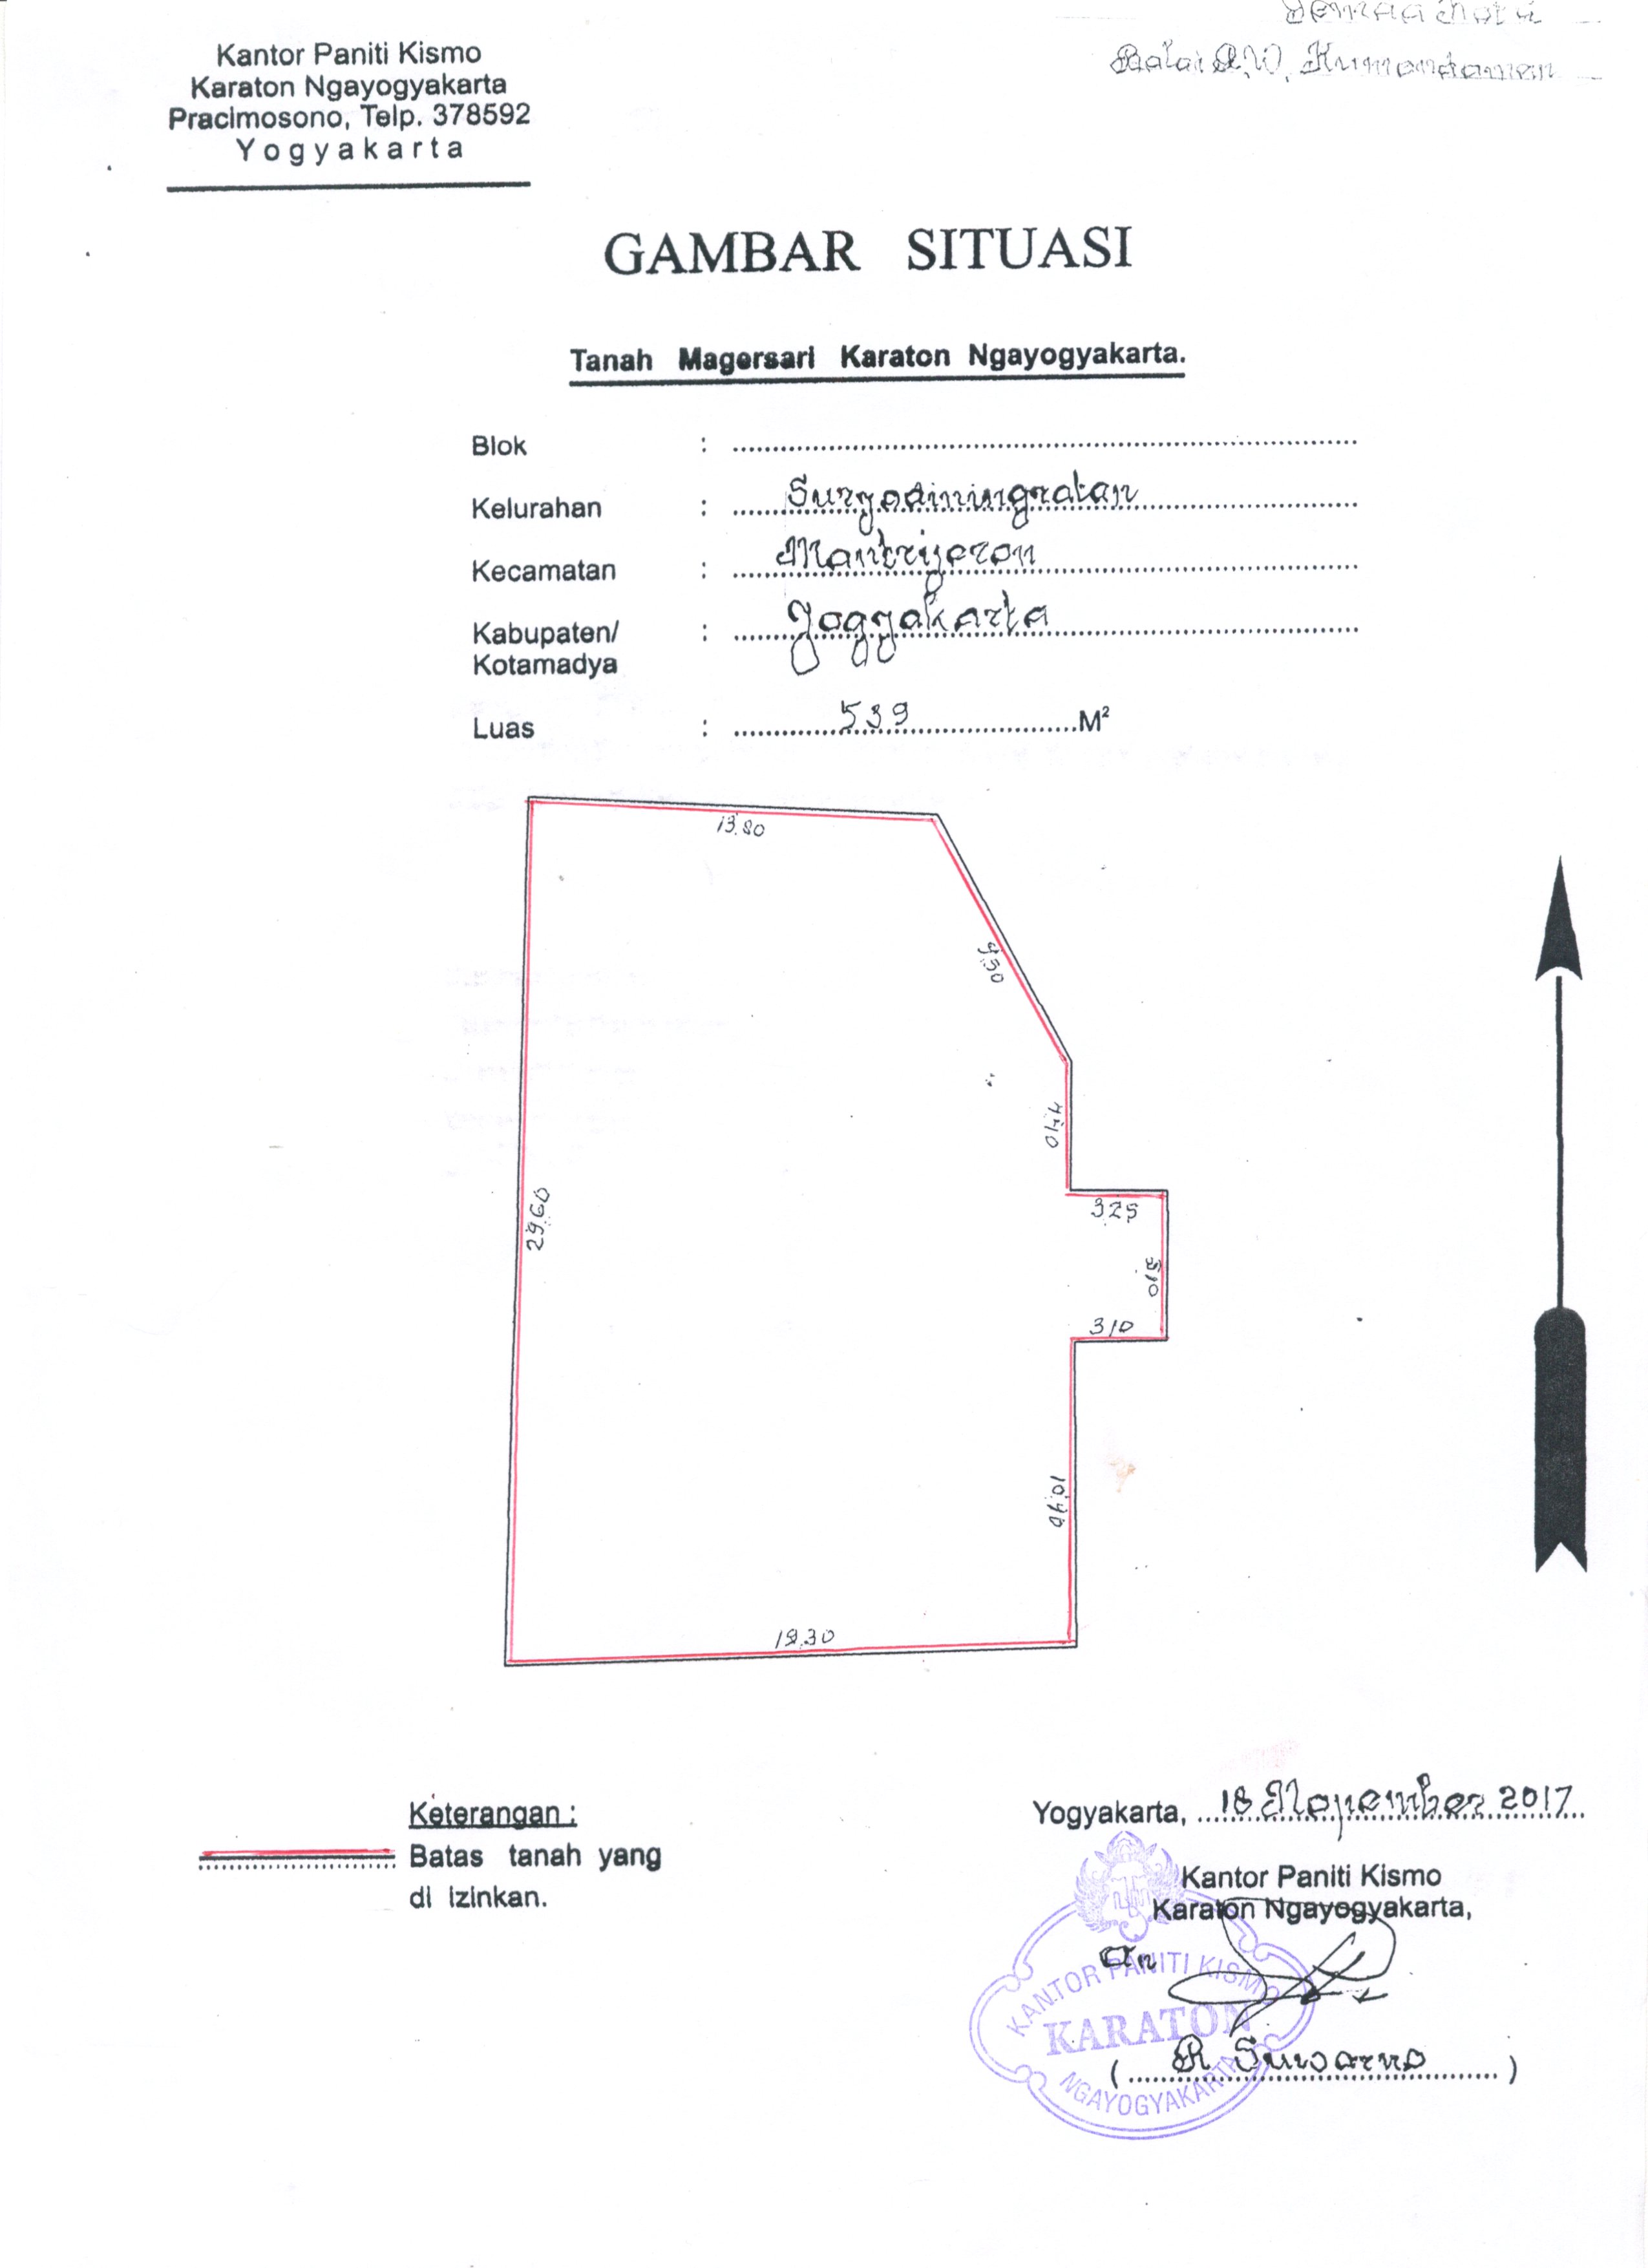 Balai R.W. Kumendaman
Kantor Paniti Kismo
Karaton Ngayogyakarta
Pracimosono, Telp. 378592
Yogyakarta
GAMBAR SITUASI
Tanah Magersari Karaton Ngayogyakarta.
Blok :
Kelurahan : Suryodiningratan
Kecamatan : Mantrijeron
Kabupaten/ : Yogyakarta
Kotamadya
Luas : 539 M²
13.80
9.30
4.40
29.60
3.25
5.10
3.10
10.40
19.30
Keterangan :
Batas tanah yang
di izinkan.
Yogyakarta, 18 Nopember 2017
Kantor Paniti Kismo
Karaton Ngayogyakarta,
an
KANTOR PANITI KISMO
KARATON
NGAYOGYAKARTA
( R Suwarno )